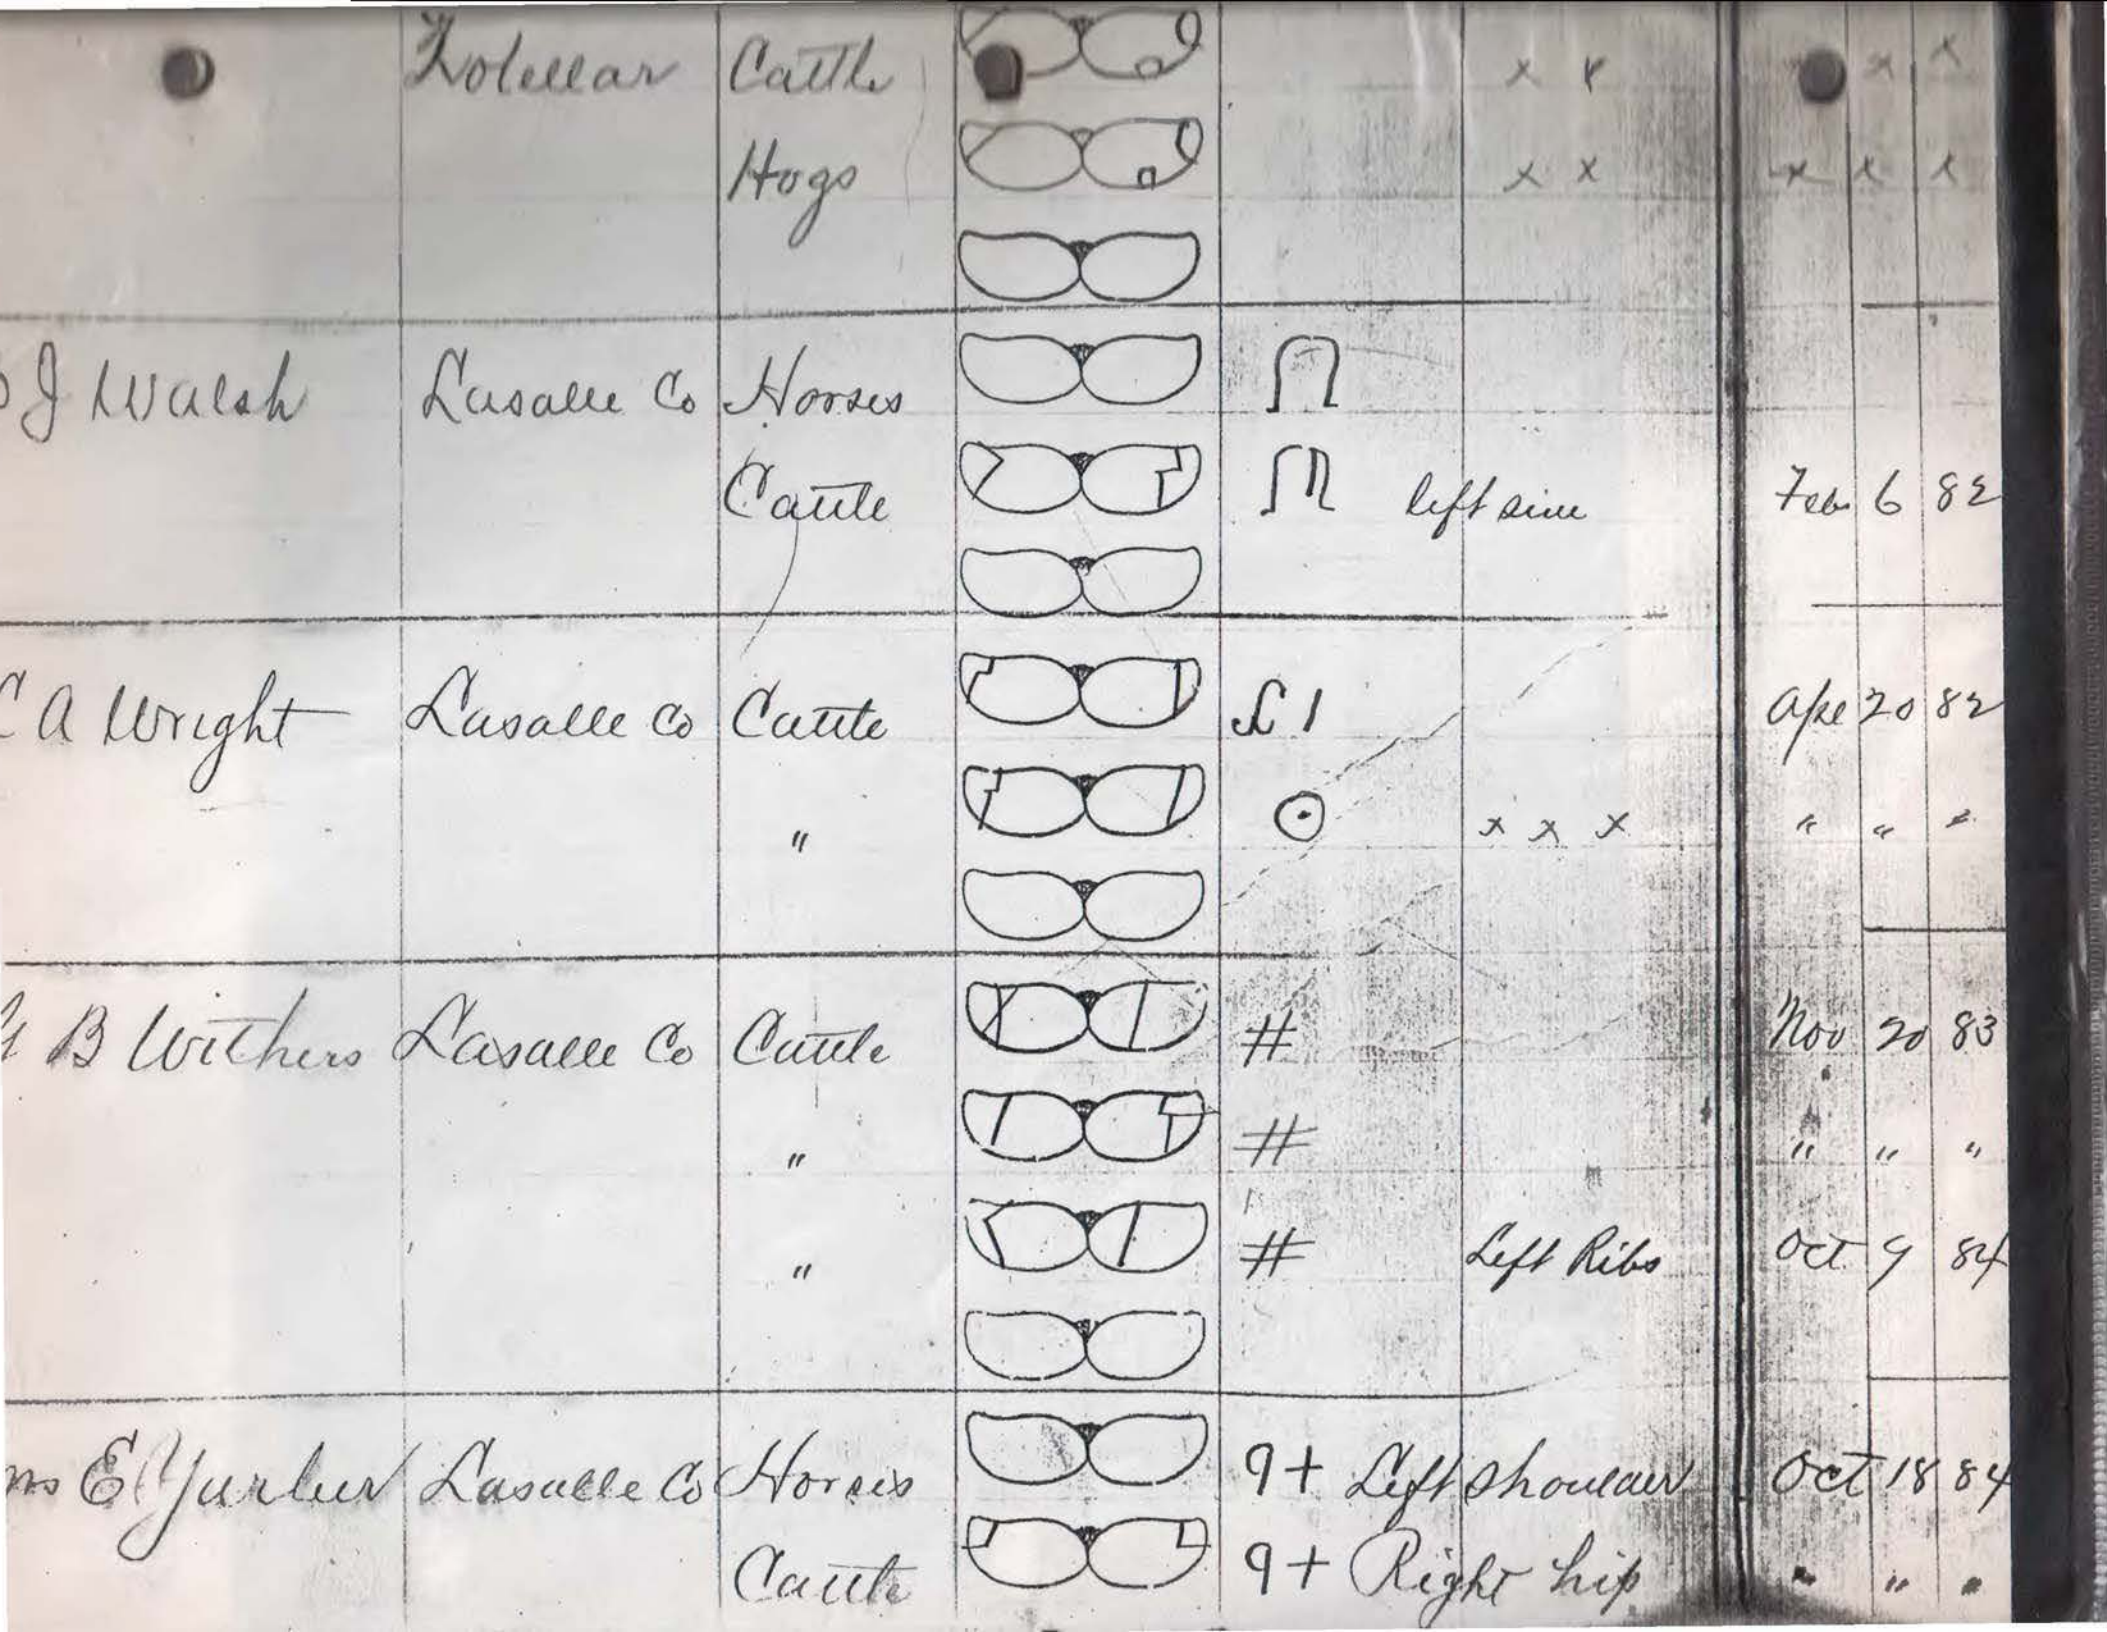 Cattle x x x x
Hogs x x x x x
J Walsh Lasalle Co Horses
Cattle left side Feb 6 82
A Wright Lasalle Co Cattle 1 Apr 20 82
" x x x " " "
B Withers Lasalle Co Cattle # Nov 20 83
" # " " "
" # Left Ribs Oct 9 84
E Lasalle Co Horses 9+ Left Shoulder Oct 18 84
Cattle 9+ Right hip " " "